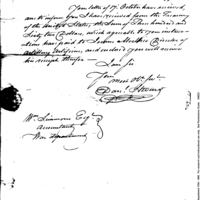 Your letter of 17. October have received,
and to inform you I have received from the Treasury
of the United States, the Sum of Three hundred and
Sixty two Dollars, which agreeable to your instruc-
tions have paid to
Artillery and inclosed you will receive
his receipt therefor —
I am Sir
Your
Most Obt. Servt.
Danl. Strong
Wm. Simmons Esqr.
Accountant
War Department